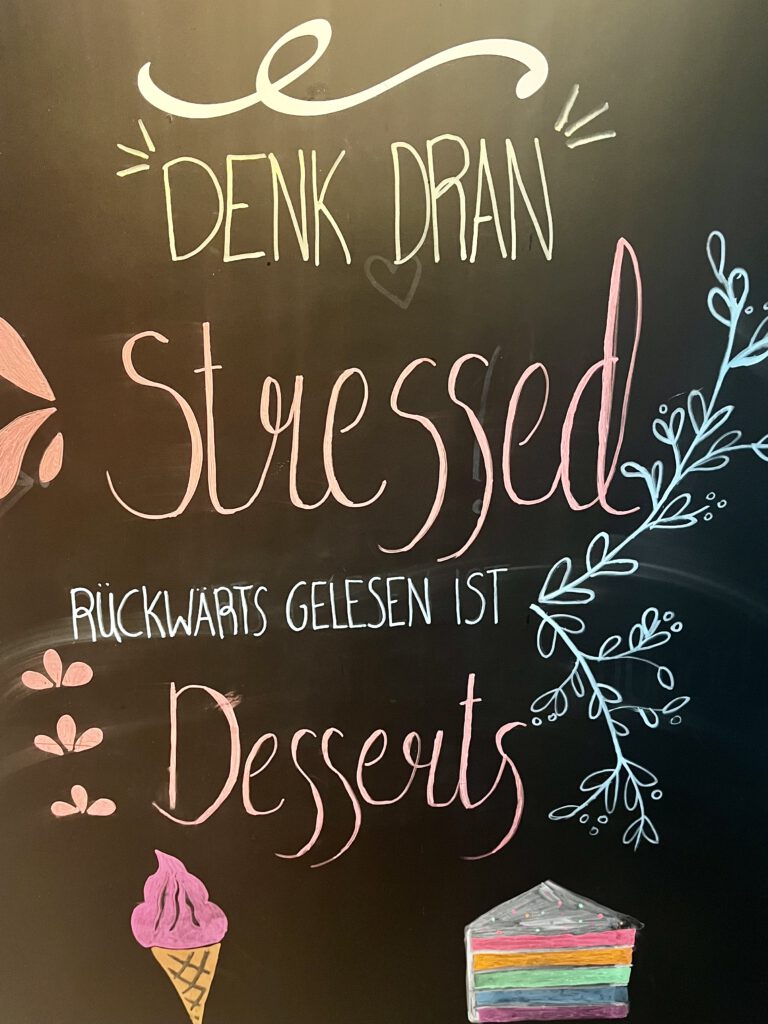 DENK DRAN
Stressed
RÜCKWÄRTS GELESEN IST
Desserts